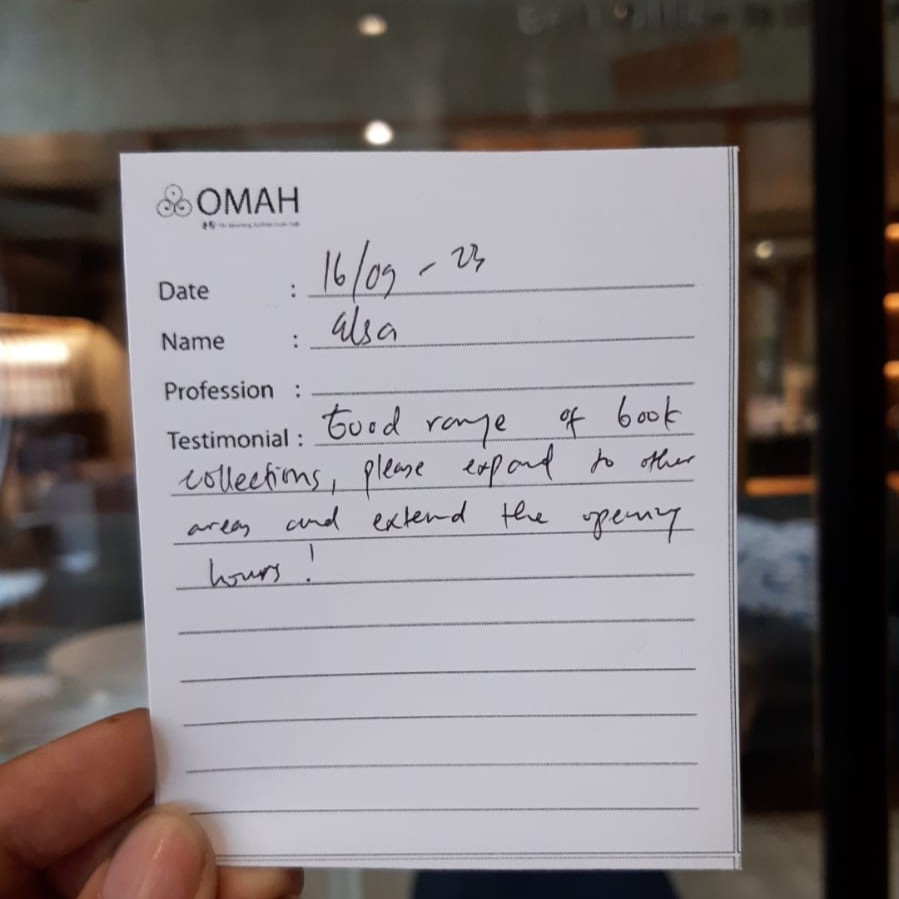 OMAH
Date : 16/09 - 23
Name : elsa
Profession :
Testimonial : Good range of book
collections, please expand to other
areas and extend the opening
hours!